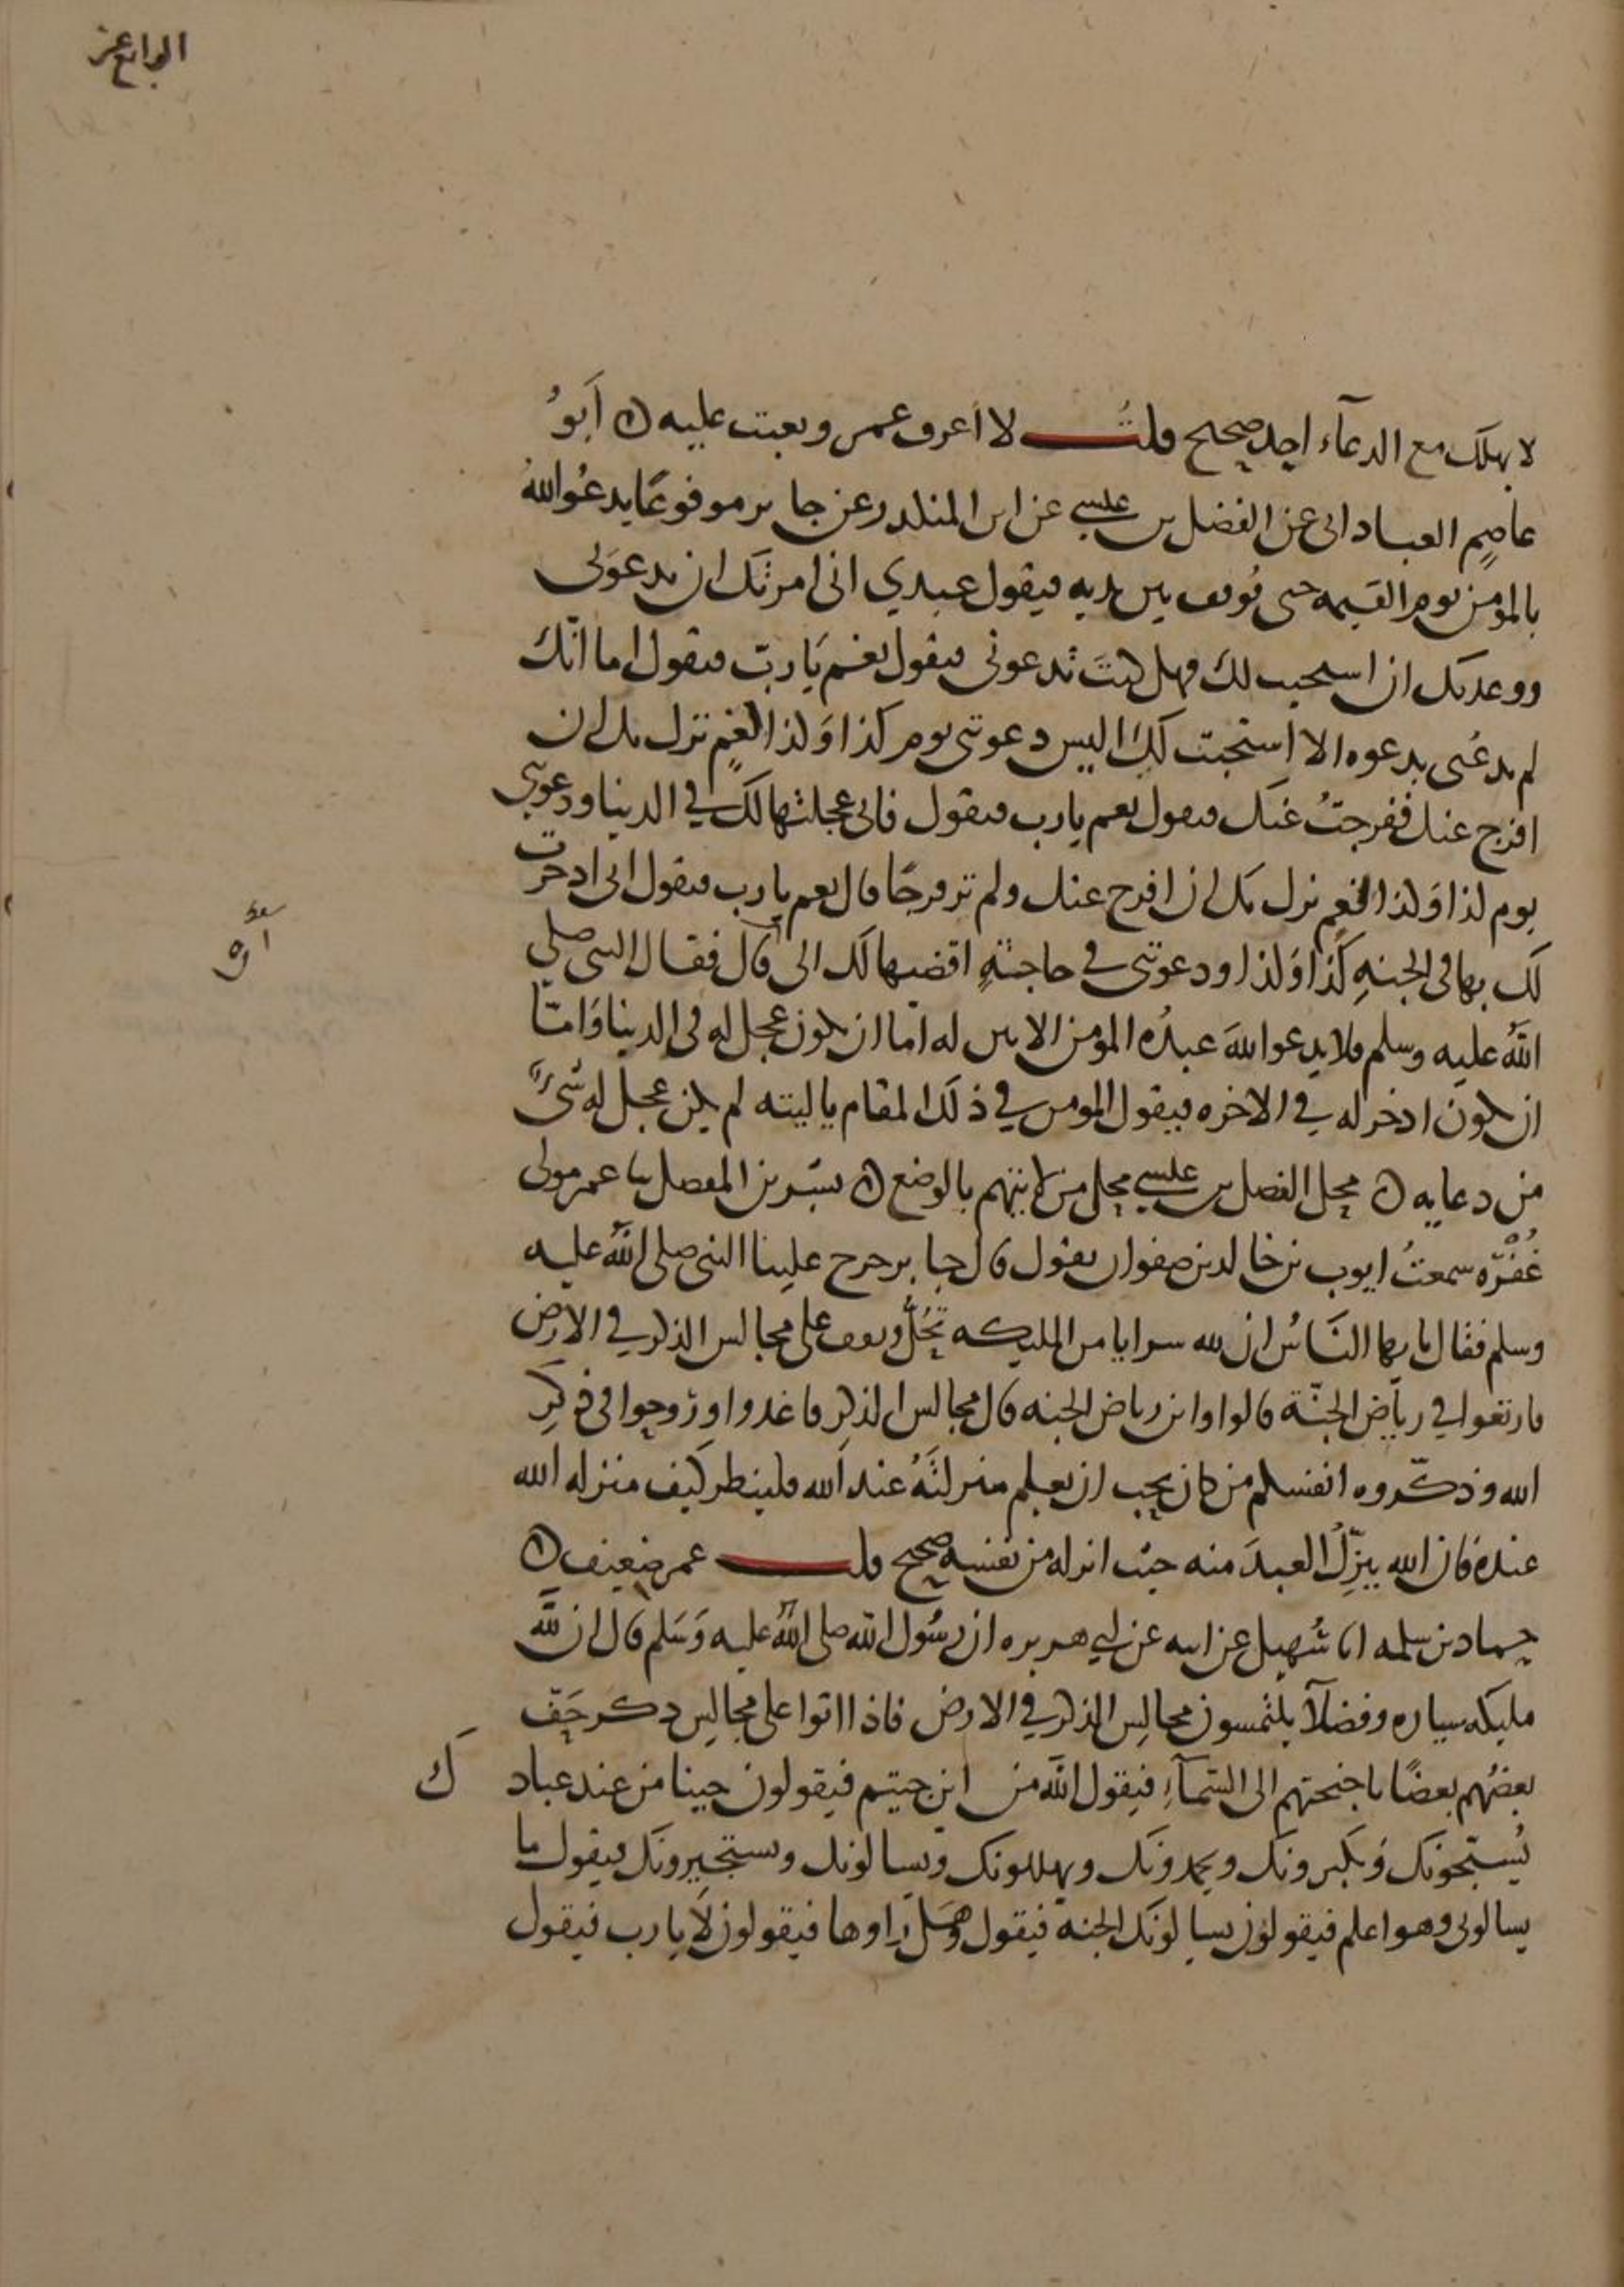 الرابع عشر
لا يهلك مع الدعآء احد صحيح قلتُ لا اعرف عمر وتعبت عليه ۞ اَبوُ
عاصِمٍ العباداني عن الفضل بن عيسى عن ابن المنكدر عن جابر موفوعًا يدعُوا اللهُ
بالمؤمن يوم القيمه حتى يُوقف بين يديه فيقول عبدي اني امرتك ان تدعوَني
ووعدتك ان استجيب لك فهل كنتَ تدعوني فيقول نعم يَا ربّ فيقول اما انّك
لم تدعُني بدعوه الا استجبت لك اليس دعوتني يوم كذا وَكذا لغمٍ نزل بك ان
افرج عنك ففرجتُ عنك فيقول نعم يا رب فيقول فاني عجلتها لك في الدنيا ودعوتني
يوم كذا وَكذا لغمٍ نزل بك ان افرج عنك ولم تر فرجًا قال نعم يا رب فيقول اني ادخرت
لك بها في الجنهِ كذا وَكذا ودعوتني في حاجةٍ اقضيها لك الى قال فقال النبي صلى
اللهُ عليه وسلم فلا يدعوا اللهَ عبدُه المؤمن الا بين له امّا ان يكون عجل له في الدنيا وَامّا
ان يكون ادخر له في الاخره فيقول المومن في ذلك المقام يا ليته لم يكن عجل له شيءٌ
من دعايه ۞ محل الفضل بن عيسى محل من لا يتهم بالوضع ۞ بشر بن المفضل ثنا عمر مولى
غُفْرَه سمعتُ ايوب بن خالد بن صفوان يقول قال جابر خرج علينا النبي صلى اللهُ عليه
وسلم فقال يا يها النَاسُ ان لله سرايا من المليكه تَحُلُّ وتقف على مجالس الذكر في الارض
فارتعوا في رياض الجنّة قالوا واين رياض الجنه قال مجالس الذكر فاغدوا وروحوا في ذِكرِ
الله وذكّروه انفسكم من كان يحب ان يعلم منزلتَهُ عند الله فلينظر كيف منزله الله
عنده فان الله ينزِّلُ العبدَ منه حيث انزله من نفسه صحيح قلت عمر ضعيف ۞
حماد بن سلمه انا سُهيل عن ابيه عن ابي هريره ان رسُول الله صلى اللهُ عليه وَسَلم قال ان للهِ
مليكه سياره وفضلاً يلتمسون مجالِس الذكر في الارض فاذا اتوا على مجالِس ذكر حَفّ
بعضُهم بعضًا باجنحتهم الى السّمآءِ فيقول اللهُ من اين جيتم فيقولون جينا من عند عباد ك
يُسبّحونك وَيكبرونك ويحمدونك ويهللونك ويسالونك ويستجيرونك فيقول ما
يسالوني وهو اعلم فيقولون يسالونك الجنه فيقول وهَل راوها فيقولون لَا يا رب فيقول